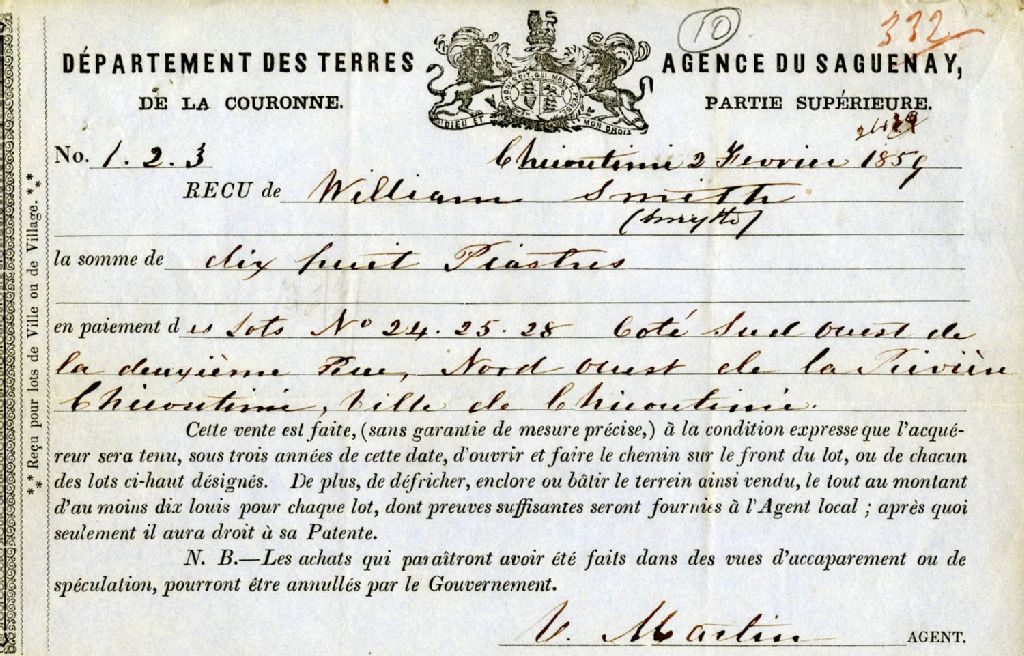 10
332
DÉPARTEMENT DES TERRES
DE LA COURONNE.
AGENCE DU SAGUENAY,
PARTIE SUPÉRIEURE.
DIEU ET MON DROIT
No. 1.2.3 Chicoutimi 2 Fevrier 1859
RECU de William Smith
(Smyth)
la somme de dix huit Piastres
en paiement des Lots No 24. 25. 28 Coté Sud Ouest de
la deuxième Rue, Nord Ouest de la Rivière
Chicoutimi, Ville de Chicoutimi.
Cette vente est faite, (sans garantie de mesure précise,) à la condition expresse que l'acqué-
reur sera tenu, sous trois années de cette date, d'ouvrir et faire le chemin sur le front du lot, ou de chacun
des lots ci-haut désignés. De plus, de défricher, enclore ou bâtir le terrein ainsi vendu, le tout au montant
d'au moins dix louis pour chaque lot, dont preuves suffisantes seront fournies à l'Agent local ; après quoi
seulement il aura droit à sa Patente.
N. B.—Les achats qui paraîtront avoir été faits dans des vues d'accaparement ou de
spéculation, pourront être annullés par le Gouvernement.
V. Martin AGENT.
** Reçu pour lots de Ville ou de Village. **